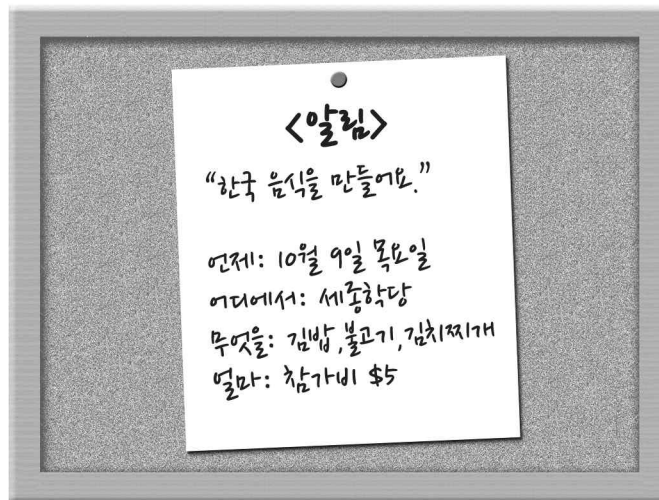 <알림>
“한국 음식을 만들어요.”
언제: 10월 9일 목요일
어디에서: 세종학당
무엇을: 김밥, 불고기, 김치찌개
얼마: 참가비 $5